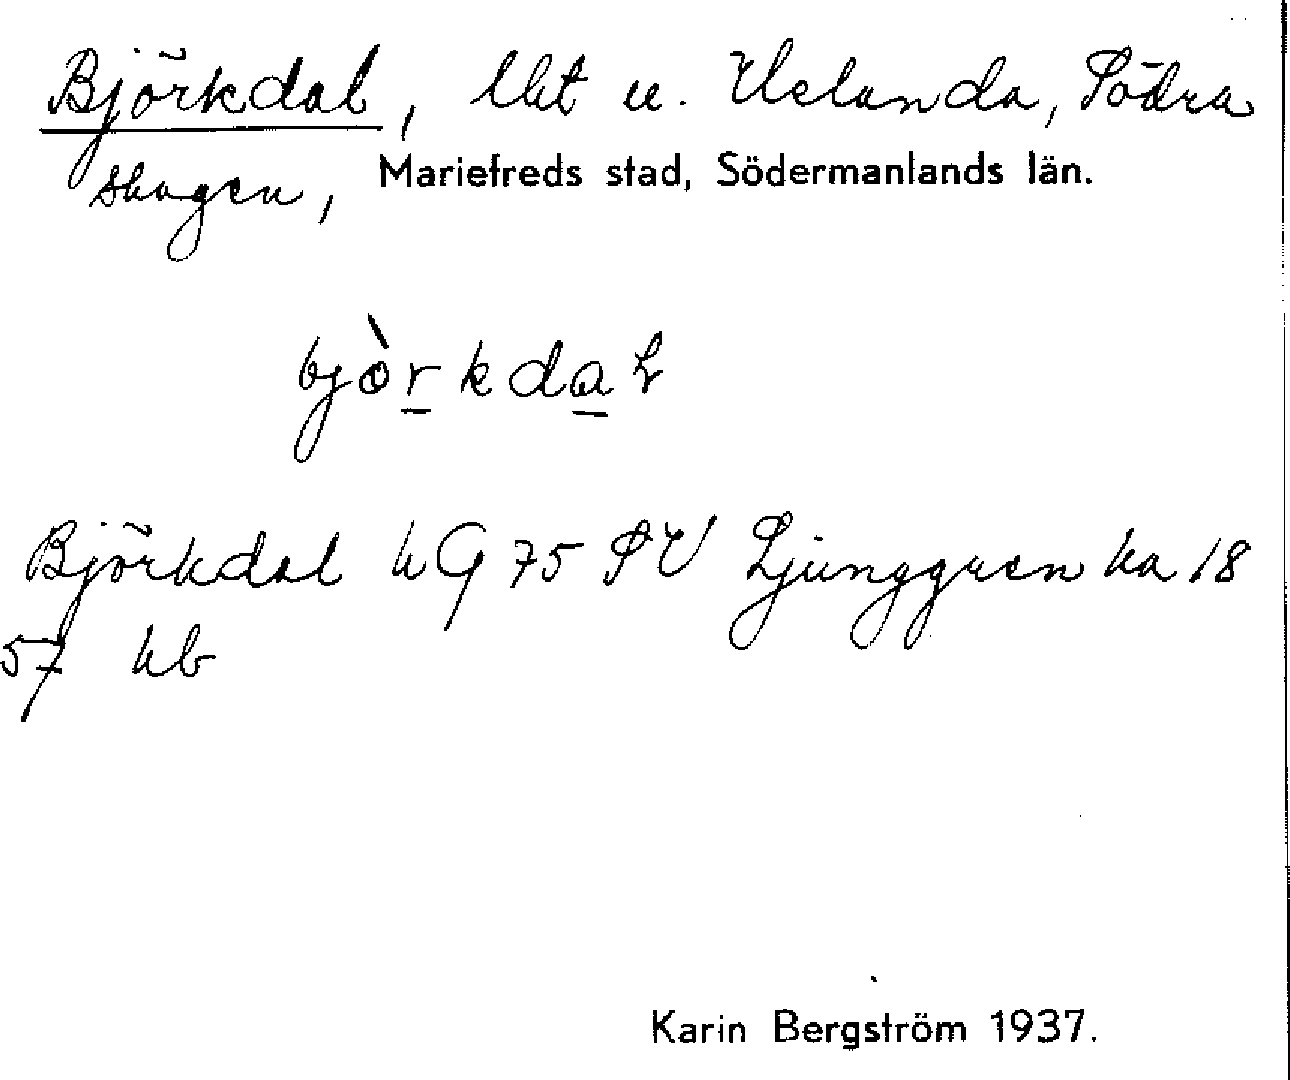 Björkdal, lht u. Helanda, Södra
skogen, Mariefreds stad, Södermanlands län.
bjòrkdał
Björkdal hG 75 SV Ljunggren ka 18
57 hb
Karin Bergström 1937.